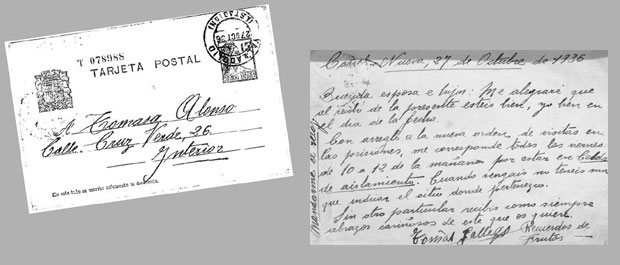 T 078988
TARJETA POSTAL
27 OCT 36
Tomasa Alonso
Calle Cruz Verde, 26
Interior
Nueva, 27 de Octubre de 1936
esposa e hijos: Me alegraré que
al recibo de la presente esteis bien, yo bien en
el dia de la fecha.
Con arreglo a la nueva orden de visitas en
las prisiones, me corresponde todos los viernes
de 10 a 12 de la mañana por estar en Celda
de aislamiento. Cuando vengais no teneis mas
que indicar el sitio donde pertenezco.
Sin otro particular recibir como siempre
abrazos cariñosos de este que os quiere
Tomás Gallego
Recuerdos de
Frutos
Mandarme el